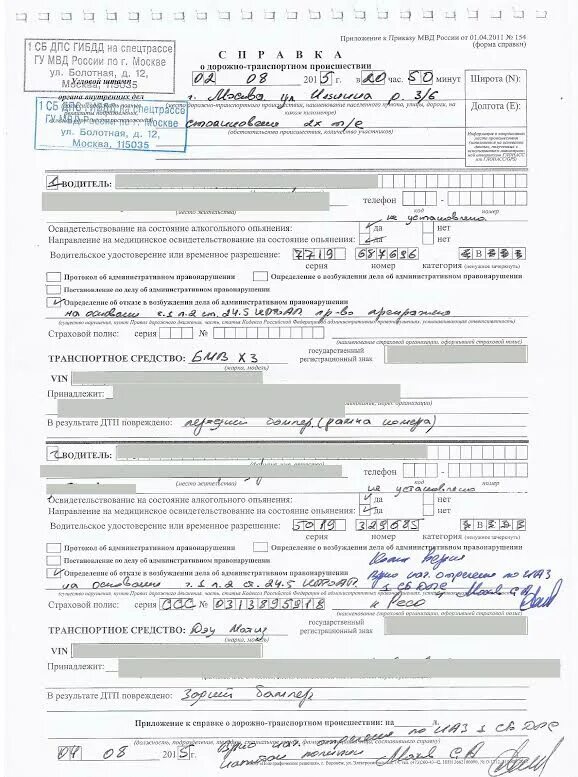 Приложение к Приказу МВД России от 01.04.2011 № 154
(форма справки)
1 СБ ДПС ГИБДД на спецтрассе
ГУ МВД России по г. Москве
ул. Болотная, д. 12,
Москва, 115035
Угловой штамп
органа внутренних дел
1 СБ ДПС ГИБДД на спецтрассе
ГУ МВД России по г. Москве
ул. Болотная, д. 12,
Москва, 115035
СПРАВКА
о дорожно-транспортном происшествии
02 08 2015 г. в 20 час. 50 минут
г. Москва ул Ильинка д. 3/6
столкновение 2х т/с
(обстоятельства происшествия, количество участников)
Широта (N):
Долгота (E):
1. ВОДИТЕЛЬ:
(место жительства)
телефон
код номер
не установлено
Освидетельствование на состояние алкогольного опьянения: да нет
Направление на медицинское освидетельствование на состояние опьянения: да нет
Водительское удостоверение или временное разрешение: 7719 687686 В
серия номер категория (ненужное зачеркнуть)
Протокол об административном правонарушении Определение о возбуждении дела об административном правонарушении
Постановление по делу об административном правонарушении
Определение об отказе в возбуждении дела об административном правонарушении
на основании ч.1 п.2 ст. 24.5 КРФоАП пр-во прекращено
Страховой полис: серия №
(наименование страховой организации, оформившей страховой полис)
ТРАНСПОРТНОЕ СРЕДСТВО: БМВ Х3 государственный регистрационный знак
(марка, модель)
VIN
Принадлежит:
В результате ДТП повреждено: передний бампер (рамка номера)
2. ВОДИТЕЛЬ:
(место жительства)
телефон
код номер
не установлено
Освидетельствование на состояние алкогольного опьянения: да нет
Направление на медицинское освидетельствование на состояние опьянения: да нет
Водительское удостоверение или временное разрешение: 5019 329685 В
серия номер категория (ненужное зачеркнуть)
Протокол об административном правонарушении Определение о возбуждении дела об административном правонарушении
Постановление по делу об административном правонарушении
Копия верна
Определение об отказе в возбуждении дела об административном правонарушении
Врио нач. отделения по ИАЗ
на основании ч.1 п.2 ст. 24.5 КРФоАП
1 СБ ДПС
Страховой полис: серия ССС № 0313895918 Ресо
(наименование страховой организации, оформившей страховой полис)
ТРАНСПОРТНОЕ СРЕДСТВО: Дэу Матиз государственный регистрационный знак
(марка, модель)
VIN
Принадлежит:
В результате ДТП повреждено: Задний бампер
Приложение к справке о дорожно-транспортном происшествии: на л.
04 08 2015 г. Врио нач. отделения по ИАЗ 1 СБ ДПС
капитан полиции